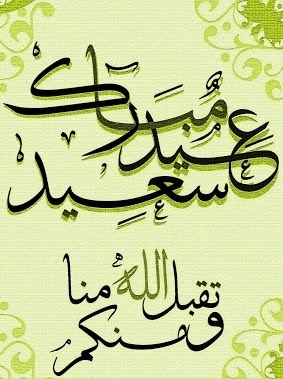 عيد مُبَرَك
سعيد
تقبل الله منا
ومنكم